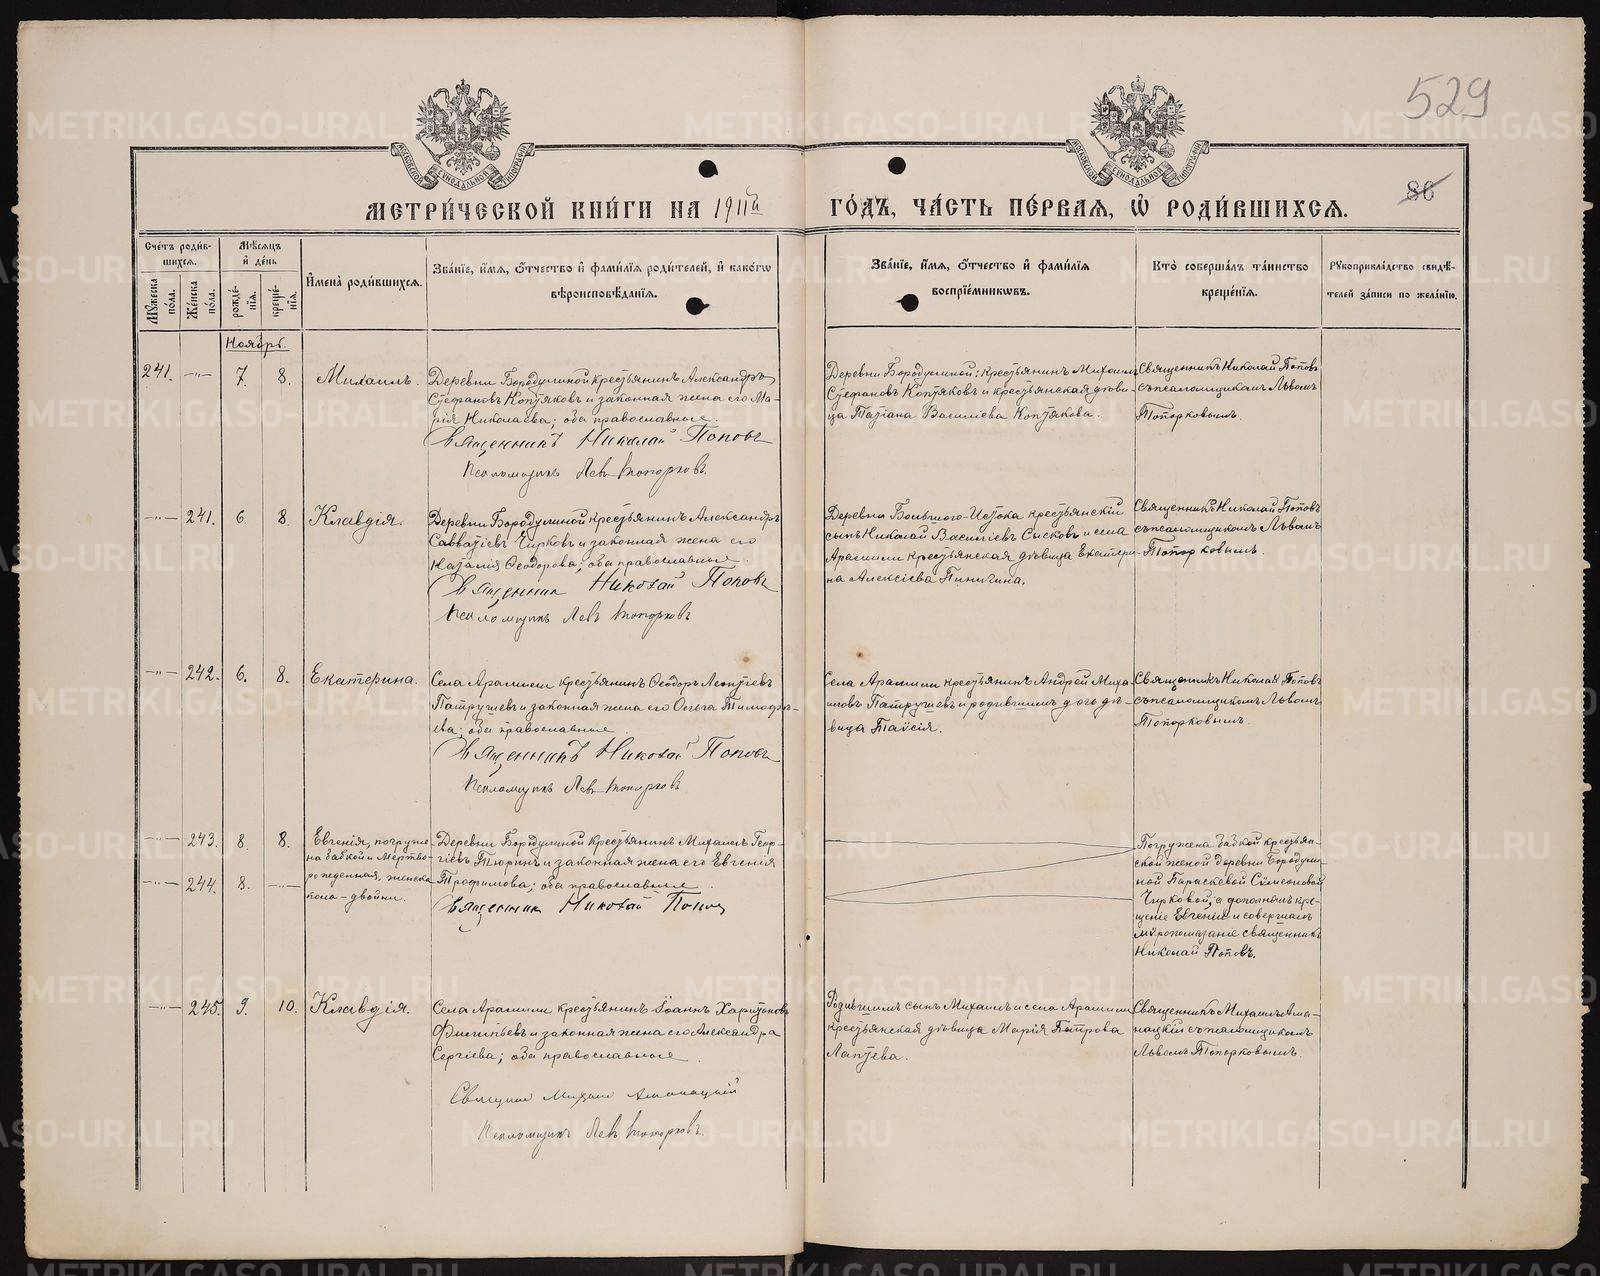 529
86
МЕТРИ́ЧЕСКОЙ КНИ́ГИ НА 1911й ГО́ДЪ, ЧА́СТЬ ПЕ́РВАЯ, Ѡ҆ РОДИ́ВШИХСЯ.
МОСКОВСКОЙ СѴНОДАЛЬНОЙ ТИПОГРАФІИ
МОСКОВСКОЙ СѴНОДАЛЬНОЙ ТИПОГРАФІИ
Сче́тъ роди́в-
шихся.
Мѣ́сяцъ
и҆ де́нь
Мꙋ́жеска
по́ла.
Же́нска
по́ла.
рожде́-
нїя.
креще́-
нїя.
И҆мена̀ роди́вшихся.
Зва́нїе, и҆́мя, ѻ҆́тчество и҆ фами́лїя роди́телей, и҆ како́гѡ
вѣроисповѣ́данїя.
Зва́нїе, и҆́мя, ѻ҆́тчество и҆ фами́лїя
воспрїе́мникѡвъ.
Кто̀ соверша́лъ та́инство
креще́нїя.
Рꙋкоприкла́дство свидѣ́-
телей за́писи по жела́нїю.
Ноябрь.
241. —"— 7. 8. Михаилъ.
Деревни Бородулиной крестьянинъ Александръ
Стефановъ Коптяковъ и законная жена его Ма-
рія Николаева; оба православные
Священникъ Николай Поповъ
Псаломщикъ Левъ Топорковъ.
Деревни Бородулиной: крестьянинъ Михаилъ
Стефановъ Коптяковъ и крестьянская дѣви-
ца Татіана Василіева Коптякова.
Священникъ Николай Поповъ
съ псаломщикомъ Львомъ
Топорковымъ.
—"— 241. 6. 8. Клавдія.
Деревни Бородулиной крестьянинъ Александръ
Савватіевъ Чирковъ и законная жена его
Наталія Ѳеодорова; оба православные.
Священникъ Николай Поповъ
Псаломщикъ Левъ Топорковъ
Деревни Большого-Истока крестьянскій
сынъ Николай Василіевъ Сысковъ и села
Арамили крестьянская дѣвица Екатери-
на Алексіева Пиничина.
Священникъ Николай Поповъ
съ псаломщикомъ Львомъ
Топорковымъ.
—"— 242. 6. 8. Екатерина.
Села Арамили крестьянинъ Ѳеодоръ Леонтіевъ
Патрушевъ и законная жена его Ольга Тимофе-
ева; оба православные
Священникъ Николай Поповъ
Псаломщикъ Левъ Топорковъ
Села Арамили крестьянинъ Андрей Миха-
иловъ Патрушевъ и родившимъ дочь дѣ-
вица Таисія.
Священникъ Николай Поповъ
съ псаломщикомъ Львомъ
Топорковымъ.
—"— 243. 8. 8.
—"— 244. 8. —"—
Евгенія, погруже-
на бабкой и мертво-
рожденная, женска
пола – двойни.
Деревни Бородулиной крестьянинъ Михаилъ Геор-
гіевъ Тюринъ и законная жена его Евгенія
Трофимова; оба православные.
Священникъ Николай Поповъ
Погружена бабкой крестьян-
ской женой деревни Бородули-
ной Параскевой Сѵмеоновой
Чирковой, а дополнилъ кре-
щеніе Евгеніи и совершилъ
мѵропомазаніе священникъ
Николай Поповъ.
—"— 245. 9. 10. Клавдія.
Села Арамили крестьянинъ Іоаннъ Харитоновъ
Филипьевъ и законная жена его Александра
Сергіева; оба православные.
Священникъ Михаилъ Аманацкій
Псаломщикъ Левъ Топорковъ.
Родившимъ сынъ Михаилъ и села Арамили
крестьянская дѣвица Марія Петрова
Лаптева.
Священникъ Михаилъ Ама-
нацкій съ псаломщикомъ
Львомъ Топорковымъ.
METRIKI.GASO-URAL.RU